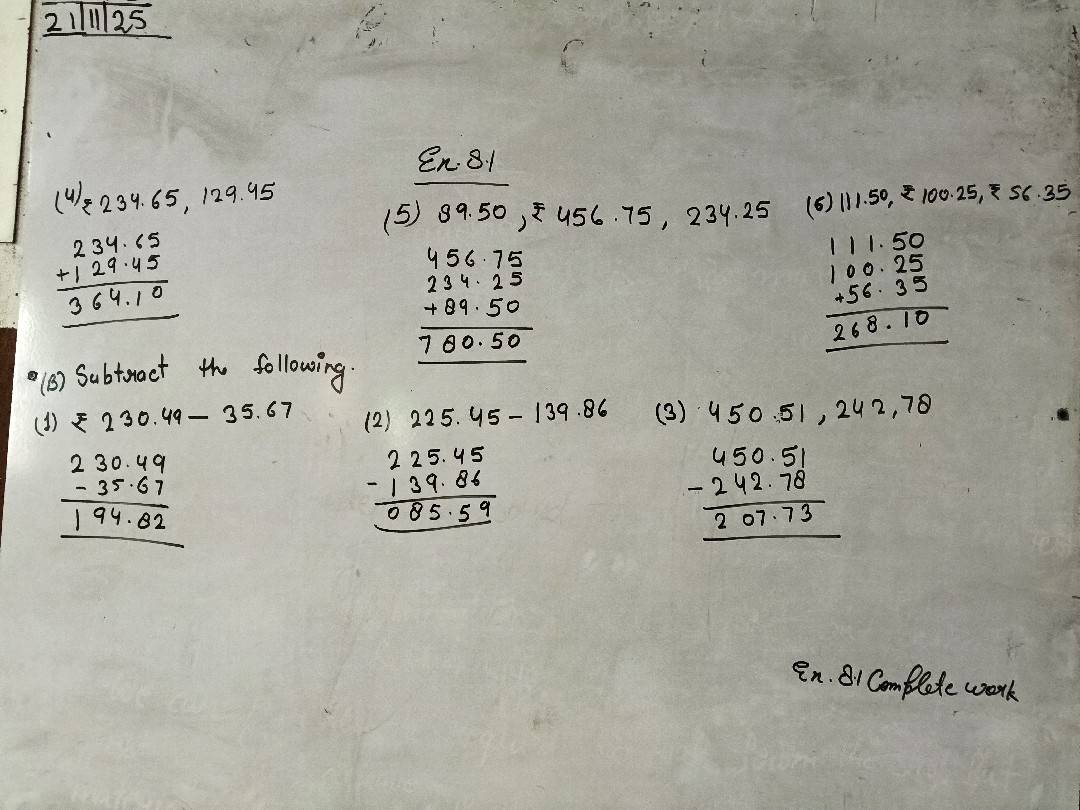 21/11/25
Ex. 8.1
(4) ₹ 234.65, 129.45
234.65
+129.45
364.10
(5) 89.50, ₹ 456.75, 234.25
456.75
234.25
+89.50
780.50
(6) 111.50, ₹ 100.25, ₹ 56.35
111.50
100.25
+56.35
268.10
(B) Subtract the following.
(1) ₹ 230.49 — 35.67
230.49
- 35.67
194.82
(2) 225.45 - 139.86
225.45
- 139.86
085.59
(3) 450.51, 242,78
450.51
- 242.78
207.73
Ex. 8.1 Complete work